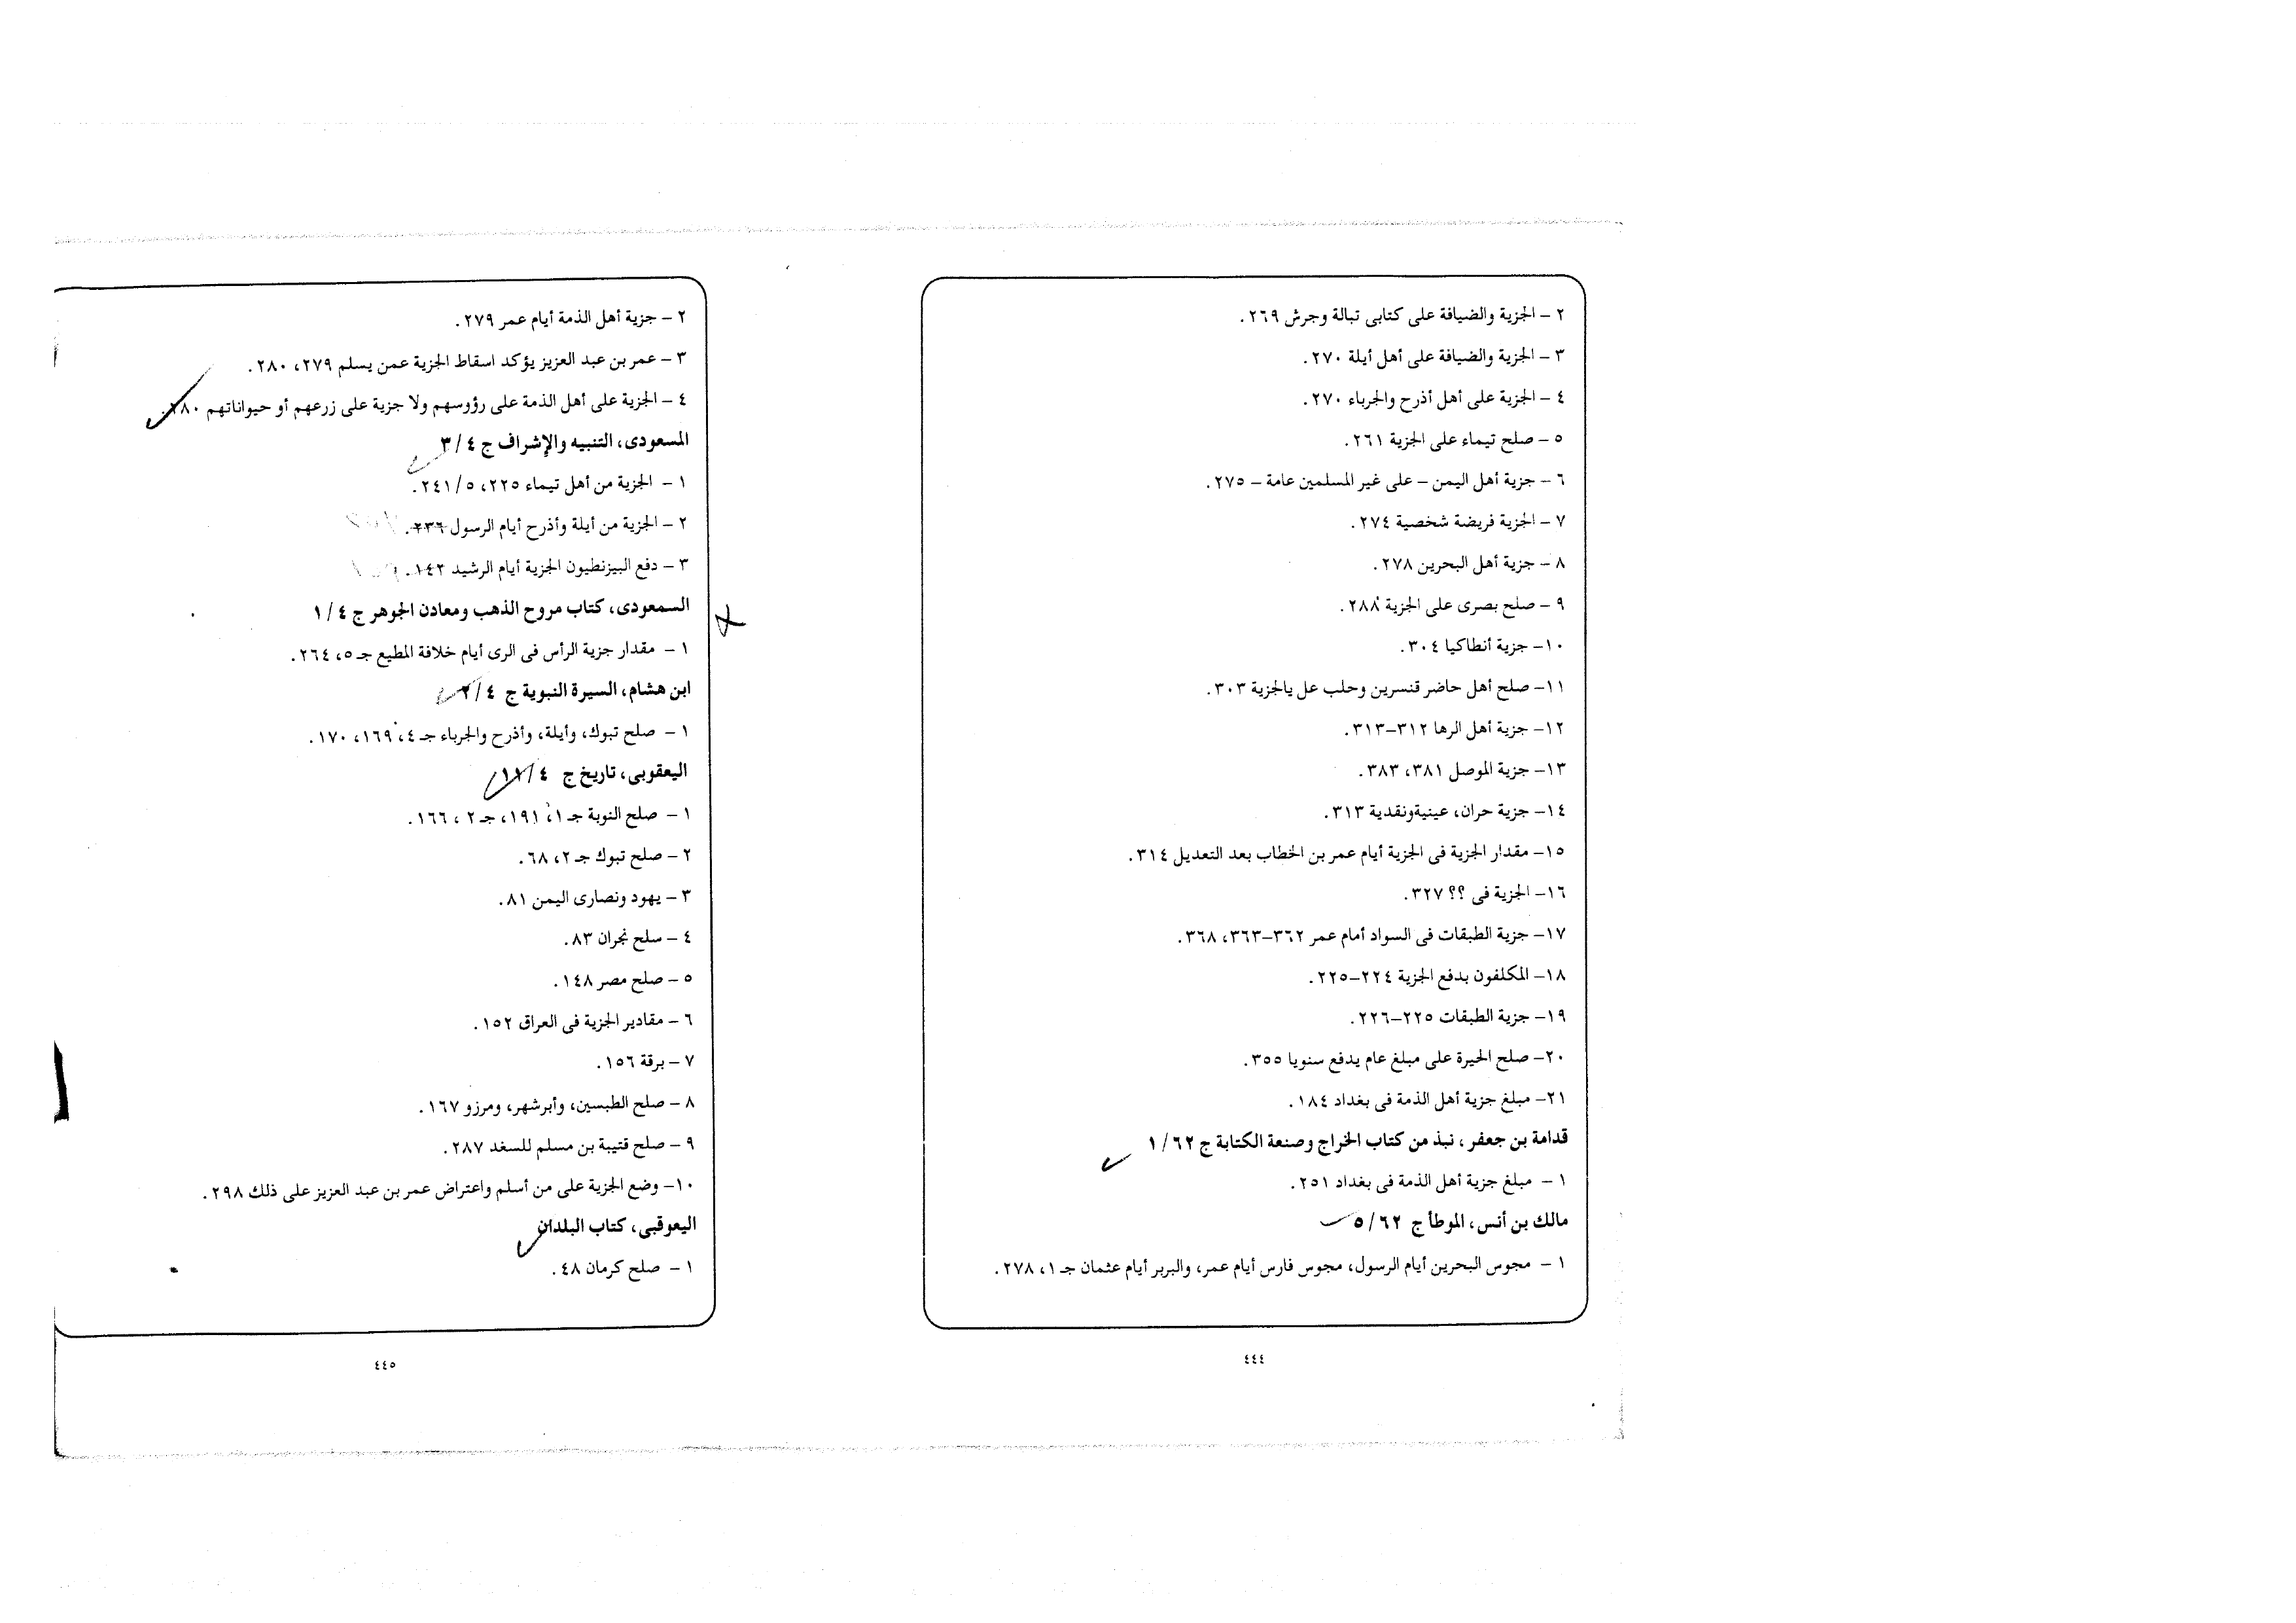 ٢ – الجزية والضيافة على كتابى تبالة وجرش ٢٦٩.
٣ – الجزية والضيافة على أهل أيلة ٢٧٠.
٤ – الجزية على أهل أذرح والجرباء ٢٧٠.
٥ – صلح تيماء على الجزية ٢٦١.
٦ – جزية أهل اليمن – على غير المسلمين عامة – ٢٧٥.
٧ – الجزية فريضة شخصية ٢٧٤.
٨ – جزية أهل البحرين ٢٧٨.
٩ – صلح بصرى على الجزية ٢٨٨.
١٠– جزية أنطاكيا ٣٠٤.
١١– صلح أهل حاضر قنسرين وحلب عل يالجزية ٣٠٣.
١٢– جزية أهل الرها ٣١٢–٣١٣.
١٣– جزية الموصل ٣٨١، ٣٨٣.
١٤– جزية حران، عينيةونقدية ٣١٣.
١٥– مقدار الجزية فى الجزية أيام عمر بن الخطاب بعد التعديل ٣١٤.
١٦– الجزية فى ؟؟ ٣٢٧.
١٧– جزية الطبقات فى السواد أمام عمر ٣٦٢–٣٦٣، ٣٦٨.
١٨– المكلفون بدفع الجزية ٢٢٤–٢٢٥.
١٩– جزية الطبقات ٢٢٥–٢٢٦.
٢٠– صلح الحيرة على مبلغ عام يدفع سنويا ٣٥٥.
٢١– مبلغ جزية أهل الذمة فى بغداد ١٨٤.
قدامة بن جعفر، نبذ من كتاب الخراج وصنعة الكتابة ج ٦٢ / ١
١ – مبلغ جزية أهل الذمة فى بغداد ٢٥١.
مالك بن أنس، الموطأ ج ٦٢ / ٥
١ – مجوس البحرين أيام الرسول، مجوس فارس أيام عمر، والبربر أيام عثمان جـ ١، ٢٧٨.
٤٤٤
٢ – جزية أهل الذمة أيام عمر ٢٧٩.
٣ – عمر بن عبد العزيز يؤكد اسقاط الجزية عمن يسلم ٢٧٩، ٢٨٠.
٤ – الجزية على أهل الذمة على رؤوسهم ولا جزية على زرعهم أو حيواناتهم ٢٨٠.
المسعودى، التنبيه والإشراف ج ٤ / ٣
١ – الجزية من أهل تيماء ٢٢٥، ٥ / ٢٤١.
٢ – الجزية من أيلة وأذرح أيام الرسول ٢٣٦.
٣ – دفع البيزنطيون الجزية أيام الرشيد ١٤٢.
السمعودى، كتاب مروح الذهب ومعادن الجوهر ج ٤ / ١
١ – مقدار جزية الرأس فى الرى أيام خلافة المطيع جـ ٥، ٢٦٤.
ابن هشام، السيرة النبوية ج ٤ / ٢
١ – صلح تبوك، وأيلة، وأذرح والجرباء جـ ٤، ١٦٩، ١٧٠.
اليعقوبى، تاريخ ج ٤ / ١١
١ – صلح النوبة جـ ١، ١٩١، جـ ٢، ١٦٦.
٢ – صلح تبوك جـ ٢، ٦٨.
٣ – يهود ونصارى اليمن ٨١.
٤ – سلح نجران ٨٣.
٥ – صلح مصر ١٤٨.
٦ – مقادير الجزية فى العراق ١٥٢.
٧ – برقة ١٥٦.
٨ – صلح الطبسين، وأبرشهر، ومرزو ١٦٧.
٩ – صلح قتيبة بن مسلم للسغد ٢٨٧.
١٠– وضع الجزية على من أسلم واعتراض عمر بن عبد العزيز على ذلك ٢٩٨.
اليعوقبى، كتاب البلدان
١ – صلح كرمان ٤٨.
٤٤٥